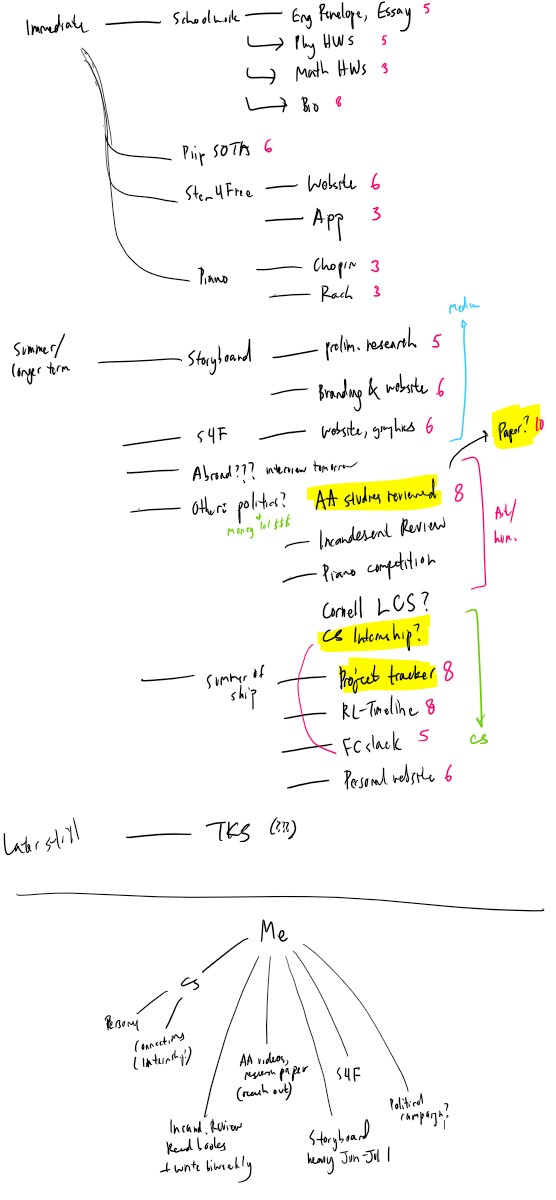 Immediate
Schoolwork
Eng Penelope, Essay 5
Phy HWs 5
Math HWs 3
Bio 8
Piip SOTA 6
Stem4Free
Website 6
App 3
Piano
Chopin 3
Rach 3
Media
Summer/
longer term
Storyboard
prelim. research 5
Branding & website 6
S4F
website, graphics 6
Paper? 10
Abroad??? interview tomorrow
Other: politics?
money lol $$$
AA studies reviewed 8
Art/
hum.
Incandescent Review
Piano competition
Cornell LCS?
CS Internship?
Summer of
ship
Project tracker 8
RL-Timeline 8
CS
FC slack 5
Personal website 6
Later still
TKS (???)
Me
CS
Personal
Connections
(Internship?)
AA videos,
research paper
(reach out)
S4F
Political
campaign?
Incand. Review
Read books
+ write biweekly
Storyboard
heavy Jun-Jul 1